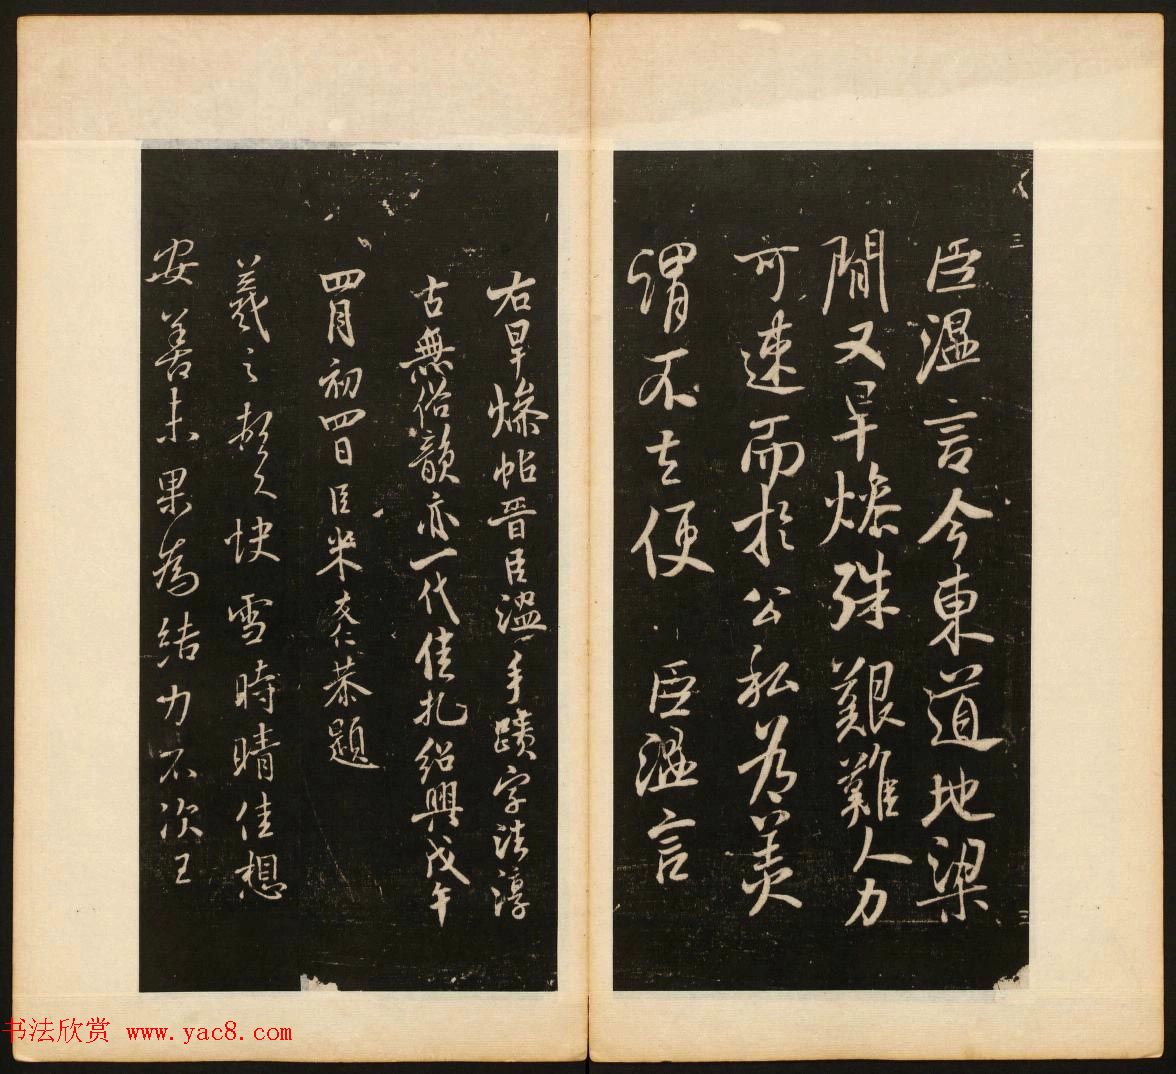 臣溫言今東道地梁
間又旱燥殊艱難人力
可速而於公私為美
謂不去便 臣溫言
右旱燥帖晉臣溫手蹟字法淳
古無俗韻亦一代佳札紹興戊午
四月初四日臣米友仁恭題
羲之頓首快雪時晴佳想
安善未果為結力不次王
三
三
书法欣赏 www.yac8.com